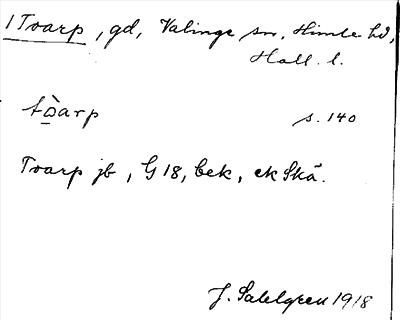 1 Tvarp, gd, Valinge sn, Himle hd,
Hall. l.
tòarp s. 140
Tvarp jb, G 18, bek, ek Skå.
J. Sahlgren 1918